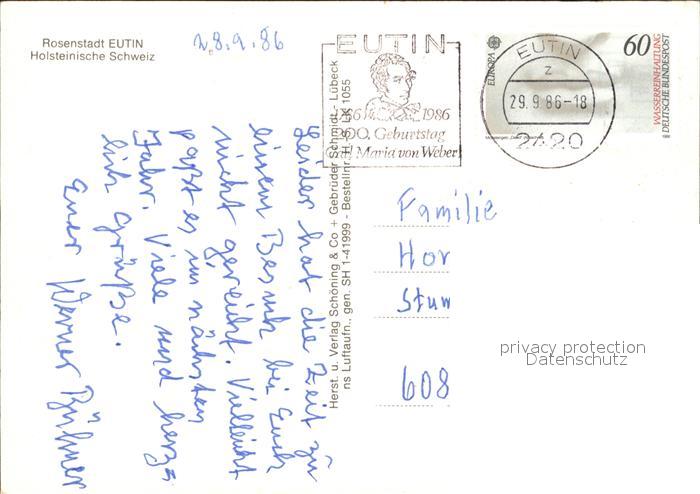 Rosenstadt EUTIN
Holsteinische Schweiz
28.9.86
EUTIN
1986
200. Geburtstag
Maria von Weber
EUTIN
z
29.9.86-18
2420
EUROPA
60
WASSERREINHALTUNG
DEUTSCHE BUNDESPOST
Leider hat die Zeit zu
einem Besuch bei Euch
nicht gereicht. Vielleicht
paßt es im nächsten
Jahr. Viele und herz=
lich Grüße.
Euer Werner Bühner
Herst. u. Verlag Schöning & Co + Gebrüder Schmidt - Lübeck
ns Luftaufn., gen. SH 1-41999 - Bestellnr. H. LÜK 1055
Familie
Hor
Stum
608
privacy protection
Datenschutz